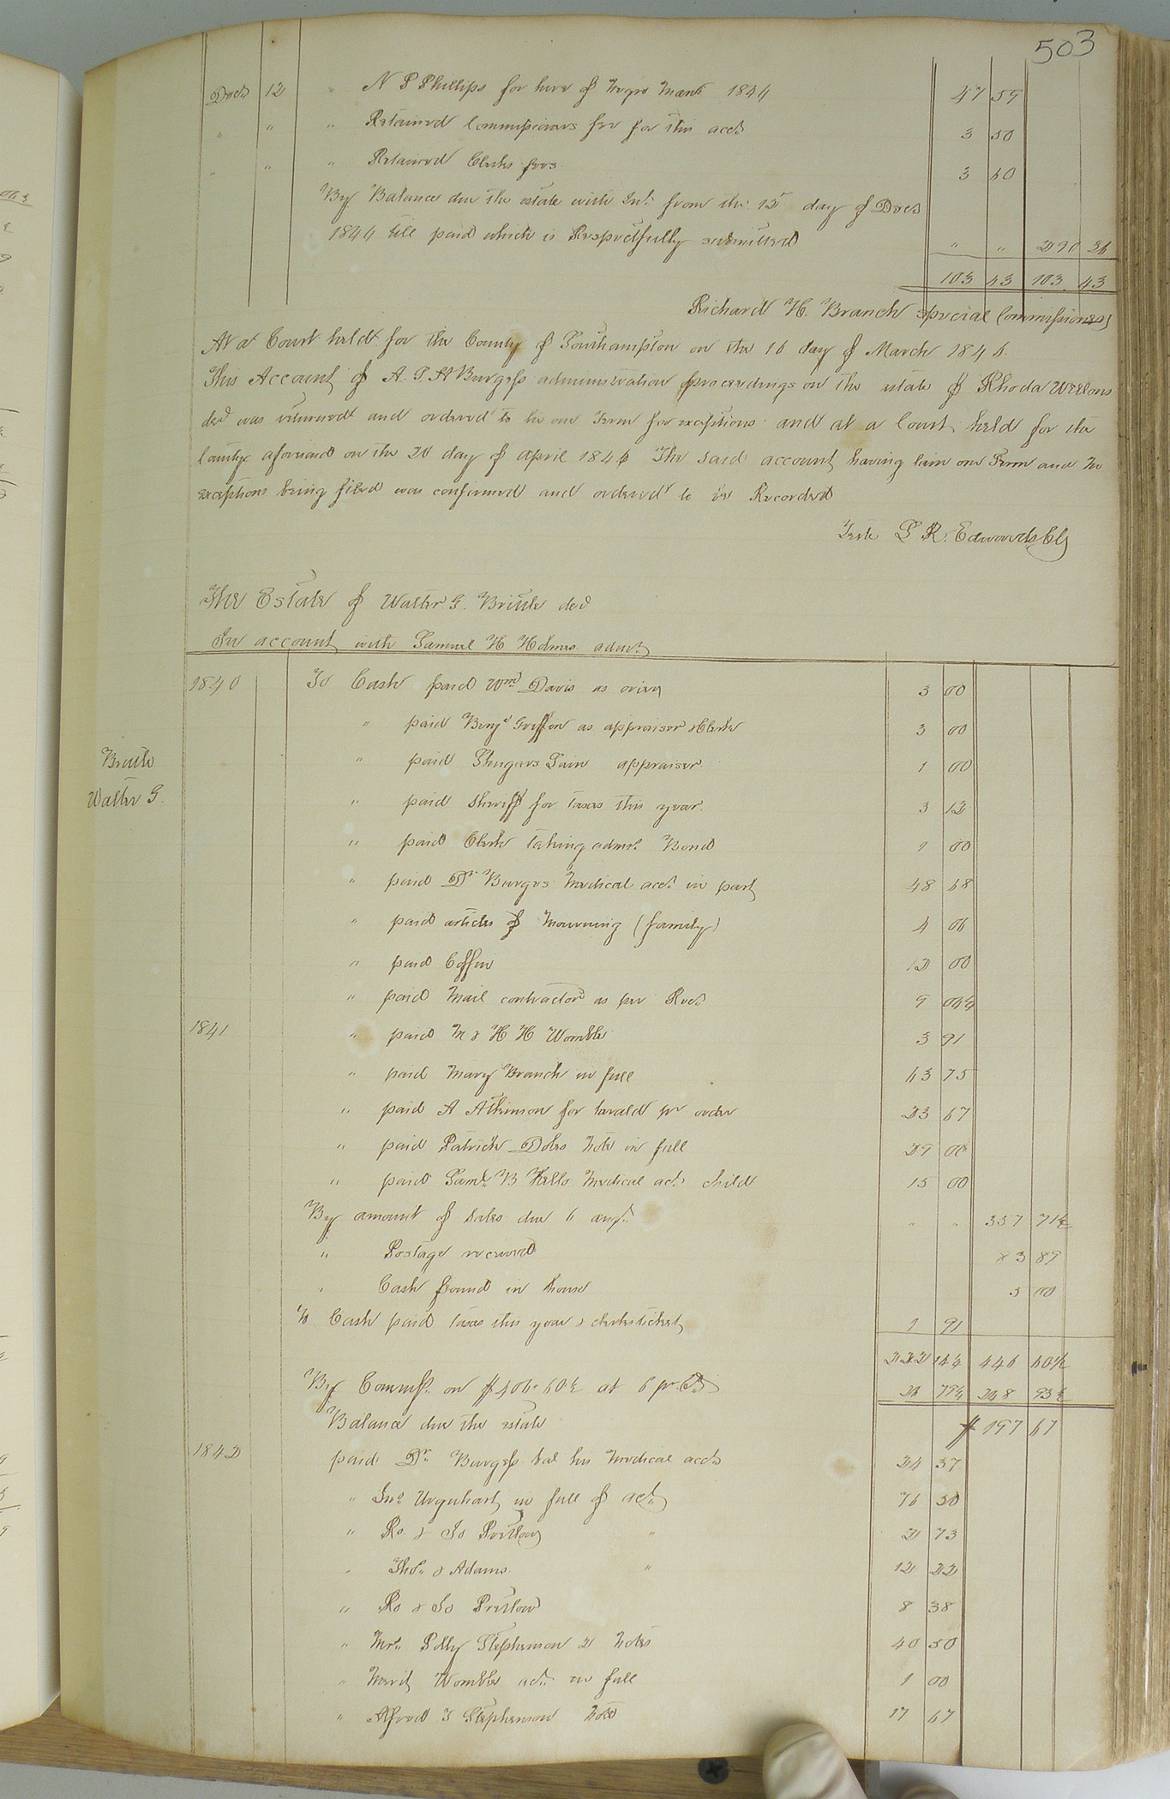 503
Decr 12 " N P Phillips for hire of Negro Mans 1844 47 59
" " " Retained Commissioners fee for this acct 3 50
" " " Retained Clerks fees 3 60
By Balance due the estate with Int. from the 12 day of Decr
1844 till paid which is Respectfully submitted " " 26
103 43 103 43
Richard H. Branch special Commissioner
At a Court held for the County of Southampton on the 16 day of March 1846.
This Account of A. P. H Burgess administration proceedings on the estate of Rhoda Wellons
decd was returned and ordered to lie one Term for exceptions and at a Court held for the
County aforesaid on the 20 day of April 1846 The said account having lain one Term and no
exceptions being filed was confirmed and ordered to be Recorded
Teste L R. Edwards Clk
The Estate of Walter G. Britt decd
In account with Samuel H Holmes admr
1840 To Cash paid Wm Davis as crier 3 00
" paid Benj. Griffin as appraiser & Clerk 3 00
Britt
" paid appraiser 1 00
Walter G.
" paid Sheriff for taxes this year 3 12
" paid Clerk taking admr. Bond 1 00
" paid Dr Burges Medical acct in part 48 68
" paid articles of mourning (family) 4 06
" paid Coffin 12 00
" paid Mail contractor as per Rect 9
1841 " paid H H Womble 3 91
" paid Mary Branch in full 63 75
" paid A Atkinson for per order 23 67
" paid Patrick Doles note in full 29 00
" paid Saml. B Hills Medical act. child 15 00
By amount of Sales due 6 " " 357 71½
" Postage received 83 89
" Cash found in house 5 00
To Cash paid taxes this year & clerks ticket 1 91
222 446 60½
By Commss. on $406.60½ at 6 pr Ct 93½
Balance due the estate $ 197 67
1842 paid Dr. Burgess bal his Medical acct 24 37
" Jno Urquhart in full of act. 76 50
" Ro & Jo Pretlow " 2 73
" Thos. Adams " 12 22
" Ro & Jo Pretlow 8 38
" Mrs. Polly Stephenson 2 notes 40 50
" Womble act. in full 1 00
" Alfred T Stephenson Note 17 67